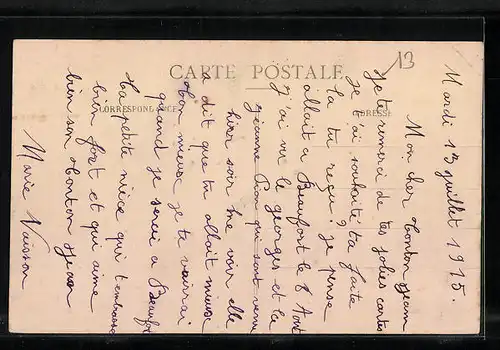 13
CARTE POSTALE
CORRESPONDANCE
ADRESSE
Mardi 13 juillet 1915.
Mon cher tonton Jean
Je te remerci de tes jolies cartes
je t'ai souhaité ta faite
la tu reçu? je pense
allait a Beaufort le 8 Aout
j'ai vu le georges et la
jeanne Pion qui sont venu
hier soir me voir elle
a dit que tu allait mieux
ton mieux je te verrai
quand je serai a Beaufort
Ta petite nièce qui t'embrasse
bien fort et qui aime
bien son tonton Jean
Marie Vuisson